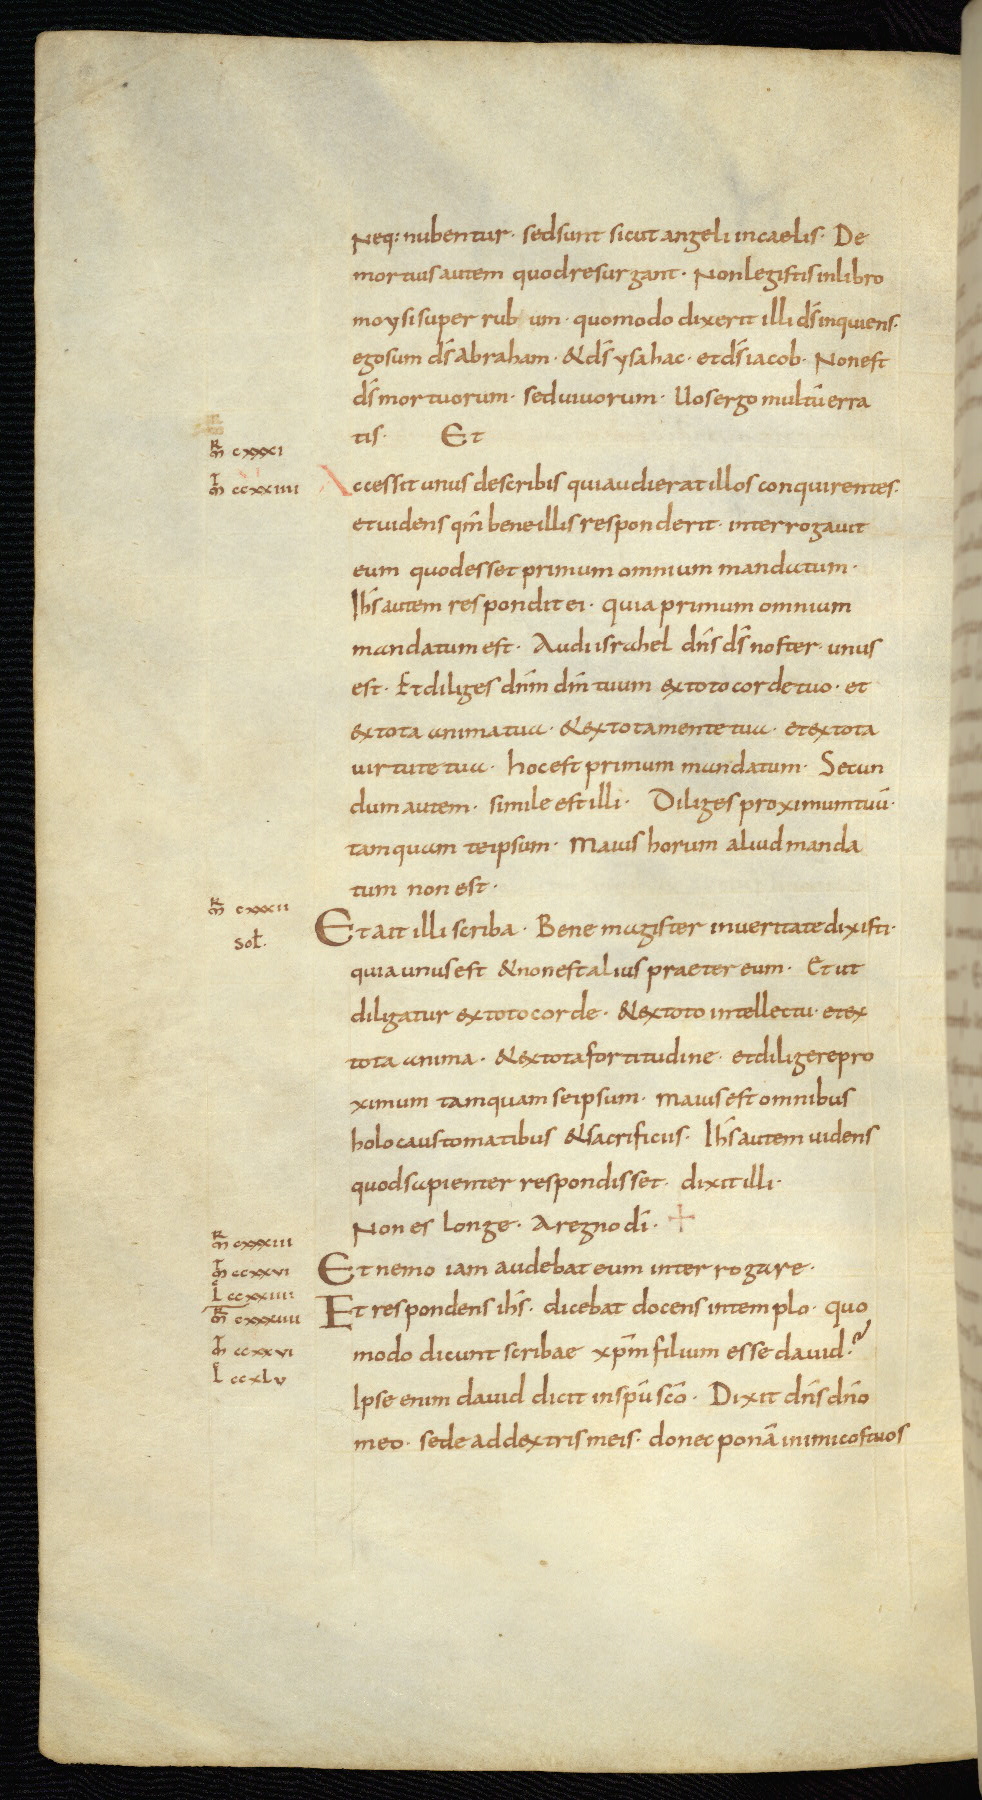 Neq: nubentur· sed sunt sicut angeli in caelis· De
mortuis autem quod resurgant· Non legistis in libro
moysi super rub um· quomodo dixerit illi d̄s inquiens·
ego sum d̄s Abraham· & d̄s ysahac· et d̄s iacob· Non est
d̄s mortuorum· sed uiuorum· Uos ergo multū erra
tis· Et
m̄ cxxxi
m̄ ccxxiiii
Accessit unus de scribis qui audierat illos conquirentes·
et uidens qm̄ bene illis responderit· interrogauit
eum quod esset primum omnium mandatum·
Ih̄s autem respondit ei· quia primum omnium
mandatum est· Audi israhel dn̄s d̄s noster· unus
est· Et diliges dn̄m dm̄ tuum ex toto corde tuo· et
ex tota anima tua· & ex tota mente tua· et ex tota
uirtute tua· hoc est primum mandatum· Secun
dum autem· simile est illi· Diliges proximum tuū·
tamquam te ipsum· Maius horum aliud manda
tum non est·
m̄ cxxxii
Sol·
Et ait illi scriba· Bene magister in ueritate dixisti·
quia unus est & non est alius praeter eum· Et ut
diligatur ex toto corde· & ex toto intellectu· et ex
tota anima· & ex tota fortitudine· et diligere pro
ximum tamquam se ipsum· maius est omnibus
holocaustomatibus & sacrificiis· Ih̄s autem uidens
quod sapienter respondisset· dixit illi·
Non es longe· A regno dī· +
m̄ cxxxiii
m̄ ccxxvi
L ccxxiiii:
Et nemo iam audebat eum interrogare·
m̄ cxxxiiii
m̄ ccxxvi
L ccxlv
Et respondens ih̄s· dicebat docens in templo· quo
modo dicunt scribae xp̄m filium esse dauid·?
Ipse enim dauid dicit in spū scō· Dixit dn̄s dn̄o
meo· sede ad dextris meis· donec ponā inimicos tuos